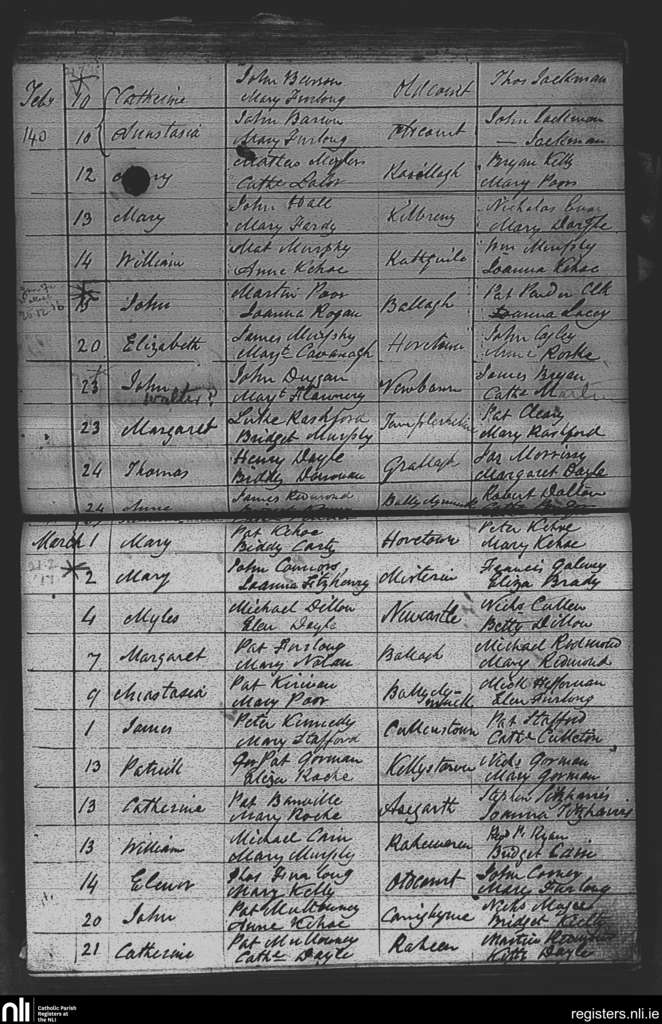 Feby 10 Catherine John Barron Oldcourt Thos Jackman
Mary Furlong
140 10 Anastasia John Barron Oldcourt John Jackman
Mary Furlong — Jackman
12 Bryan Kelly
Cathe Lalor Mary Poor
13 Mary John Hall Kilbreny Nicholas
Mary Hardy Mary
14 William Mat Murphy Wm Murphy
Anne Kehoe Joanna Kehoe
15 John Martin Poor Ballagh Pat Clk
Joanna Hogan Joanna Lacey
20 Elizabeth James Murphy Hovetown John Cogley
Mary Cavanagh Anne Rorke
23 John John Duggan Newbawn James Bryan
Walter? Mary Flannery Cathe Martin
23 Margaret Luke Rashford Pat Cleary
Bridget Murphy Mary Rashford
24 Thomas Henry Doyle Grallagh Jas Morrissy
Biddy Donovan Margaret Doyle
24 Anne James Redmond Robert Dalton
March 1 Mary Pat Kehoe Hovetown Peter Kehoe
Biddy Carty Mary Kehoe
2 Mary John Connors, Misterin Francis Galwey
Joanna Fitzhenry Eliza Brady
4 Myles Michael Dillon Newcastle Nichs Cullen
Elen Doyle Betty Dillon
7 Margaret Pat Furlong Ballagh Michael Redmond
Mary Nolan Mary Redmond
9 Anastasia Pat Kirivan Mick Heffernan
Mary Poor Elen Furlong
1 James Peter Kennedy Cullenstown Pat Stafford
Mary Stafford Cathe Culleton
13 Patrick Pat Gorman Kellystown Nichs Gorman
Eliza Roche Mary Gorman
13 Catherine Pat Banville Assgarth Stephen Fitzharris
Mary Roche Joanna Fitzharris
13 William Michael Cain P. Ryan
Mary Murphy Bridget Cain
14 Elenor Thos Furlong Oldcourt John Cooney
Mary Kelly Mary Furlong
20 John Pat Mullowney Carrigbyrne Nichs Magee
Anne Kehoe Bridget
21 Catherine Pat Mullowney Raheen Martin
Cathe Doyle Kitty Doyle
nli Catholic Parish
Registers at
the NLI
registers.nli.ie